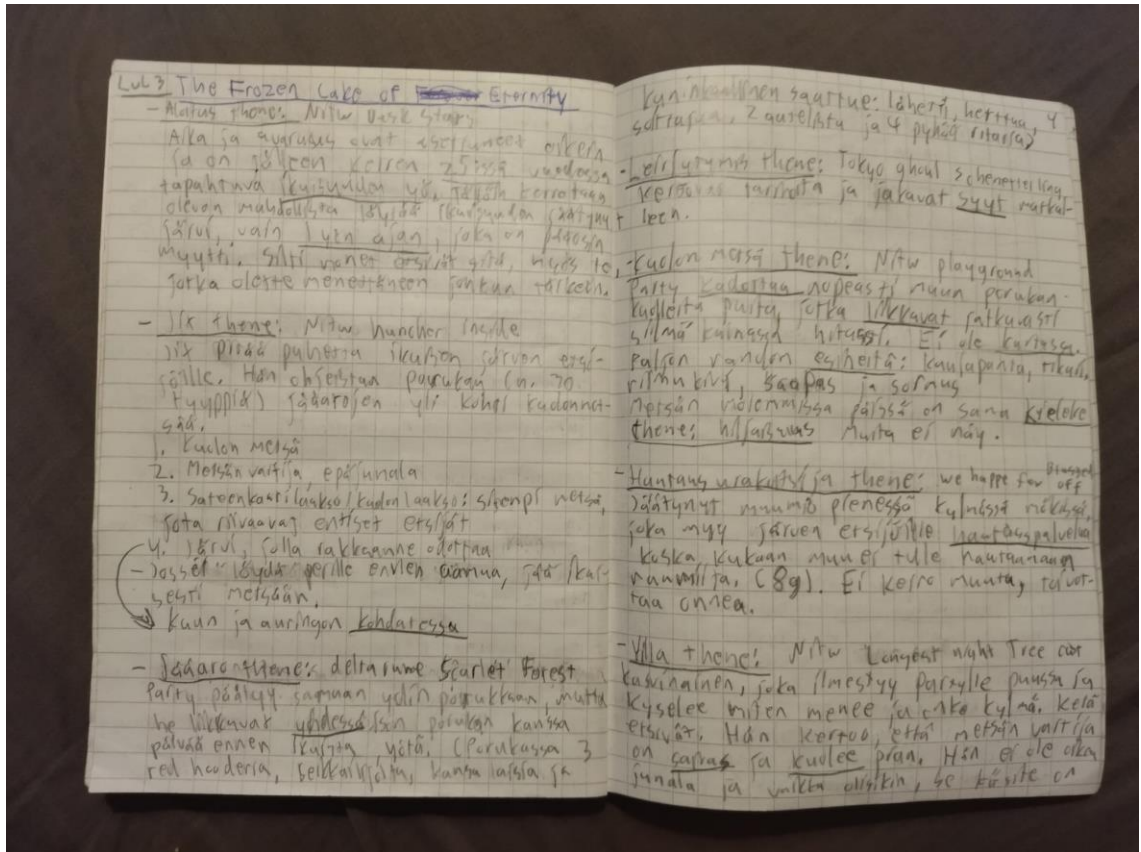 Lvl 3 The Frozen Lake of Eternity
- Aloitus theme: Nitw Dusk Stars
Aika ja avaruus ovat asettuneet oikein
ja on jälleen kerran 25:ssä vuodessa
tapahtuva ikuisuuden yö. Tällöin kerrotaan
olevan mahdollista löytää ikuisuuden jäätynyt
järvi, vain lyen ajan, joka on pitkään
myytti. Silti monet etsivät sitä, myös te,
jotka olette menettäneen jonkun tärkeän.
- Jix theme: Nitw huncher inside
Jix pitää puhetta ikuisen järven etsi-
jöille. Hän ohjeistaa porukan (n. 30
tyyppiä) jäärajan yli kohti kadonnet-
1. Kuolon metsä
2. Metsän vartija, epäjumala
3. Sateenkaarilaakso/kuolon laakso: sitempi metsä,
jota riivaavat entiset etsijät
4. Järvi, jolla rakkaanne odottaa
- Jos et löydä perille ennen aamua, jää ikui-
sesti metsään.
Kuun ja auringon kohdatessa
- theme: deltarune Scarlet Forest
Party päätyy samaan porukkaan, mutta
he liikkuvat yhdessä ison porukan kanssa
päivää ennen ikuista yötä. (Porukassa 3
red hooderia, seikkailijoita, kansalaisia ja
kuninkaallinen saattue: lähetti, herttua, 4
2 ja 4 pyhää ritaria)
- Leiriytymis theme: Tokyo ghoul
Kertovat tarinoita ja jakavat syyt matkal-
leen.
- Kuolon metsä theme: Nitw playground
Party kadottaa nopeasti muun porukan.
Kuolleita puita, jotka liikkuvat jatkuvasti
silmä kulmassa hitaasti. Ei ole kartassa.
Paljon random esineitä: kaulapanta, rikki,
riimukivi, saapas ja sormus
Metsän molemmissa päissä on sama kyltti
theme: hiljaisuus Muita ei näy.
- Hautausurakoitsija theme: we happy few
Jäätynyt muumio pienessä kylmässä mökissä,
joka myy järven etsijöille hautauspalvelua
koska kukaan muu ei tule hautaamaan
ruumiita. (8g). Ei kerro muuta, toivot-
taa onnea.
- Villa theme: Nitw Longest night Tree
kasvinainen, joka ilmestyy partylle puussa ja
kyselee miten menee ja onko kylmä, ketä
etsivät. Hän kertoo, että metsän vartija
on sairas ja kuolee pian. Hän ei ole oikea
jumala ja vaikka olisikin, se käsite on